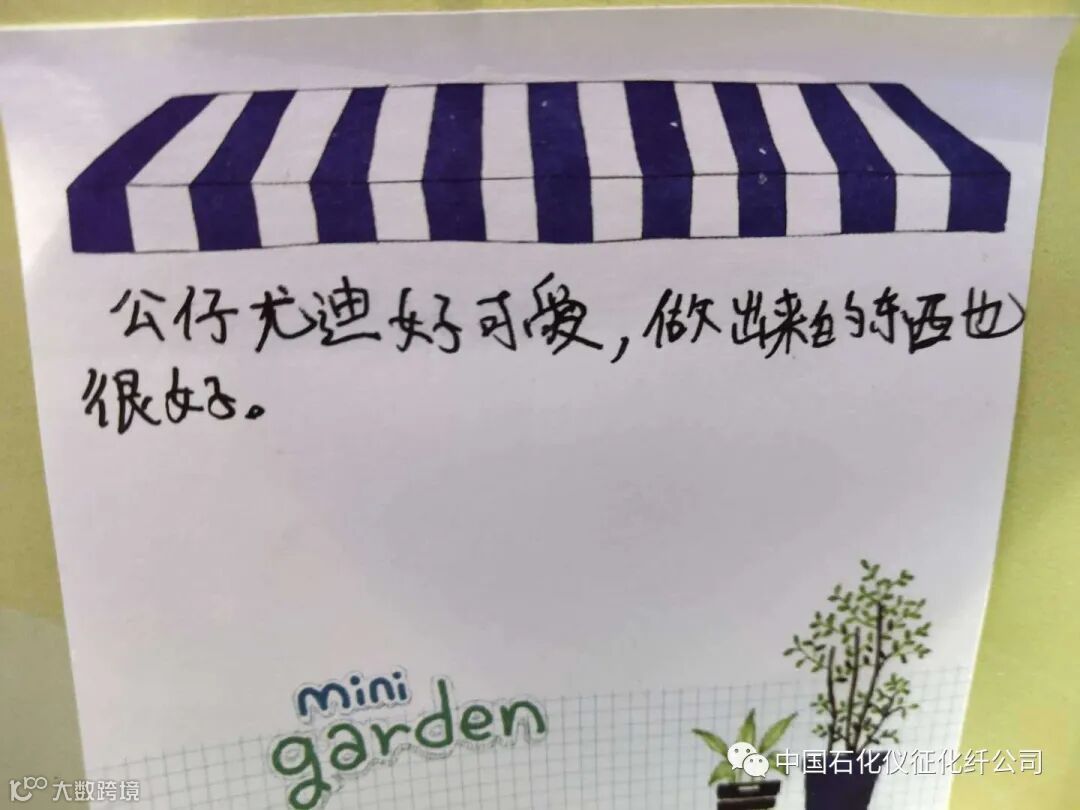 公仔尤迪好可爱，做出来的东西也
很好。
mini
garden
中国石化仪征化纤公司
大数跨境